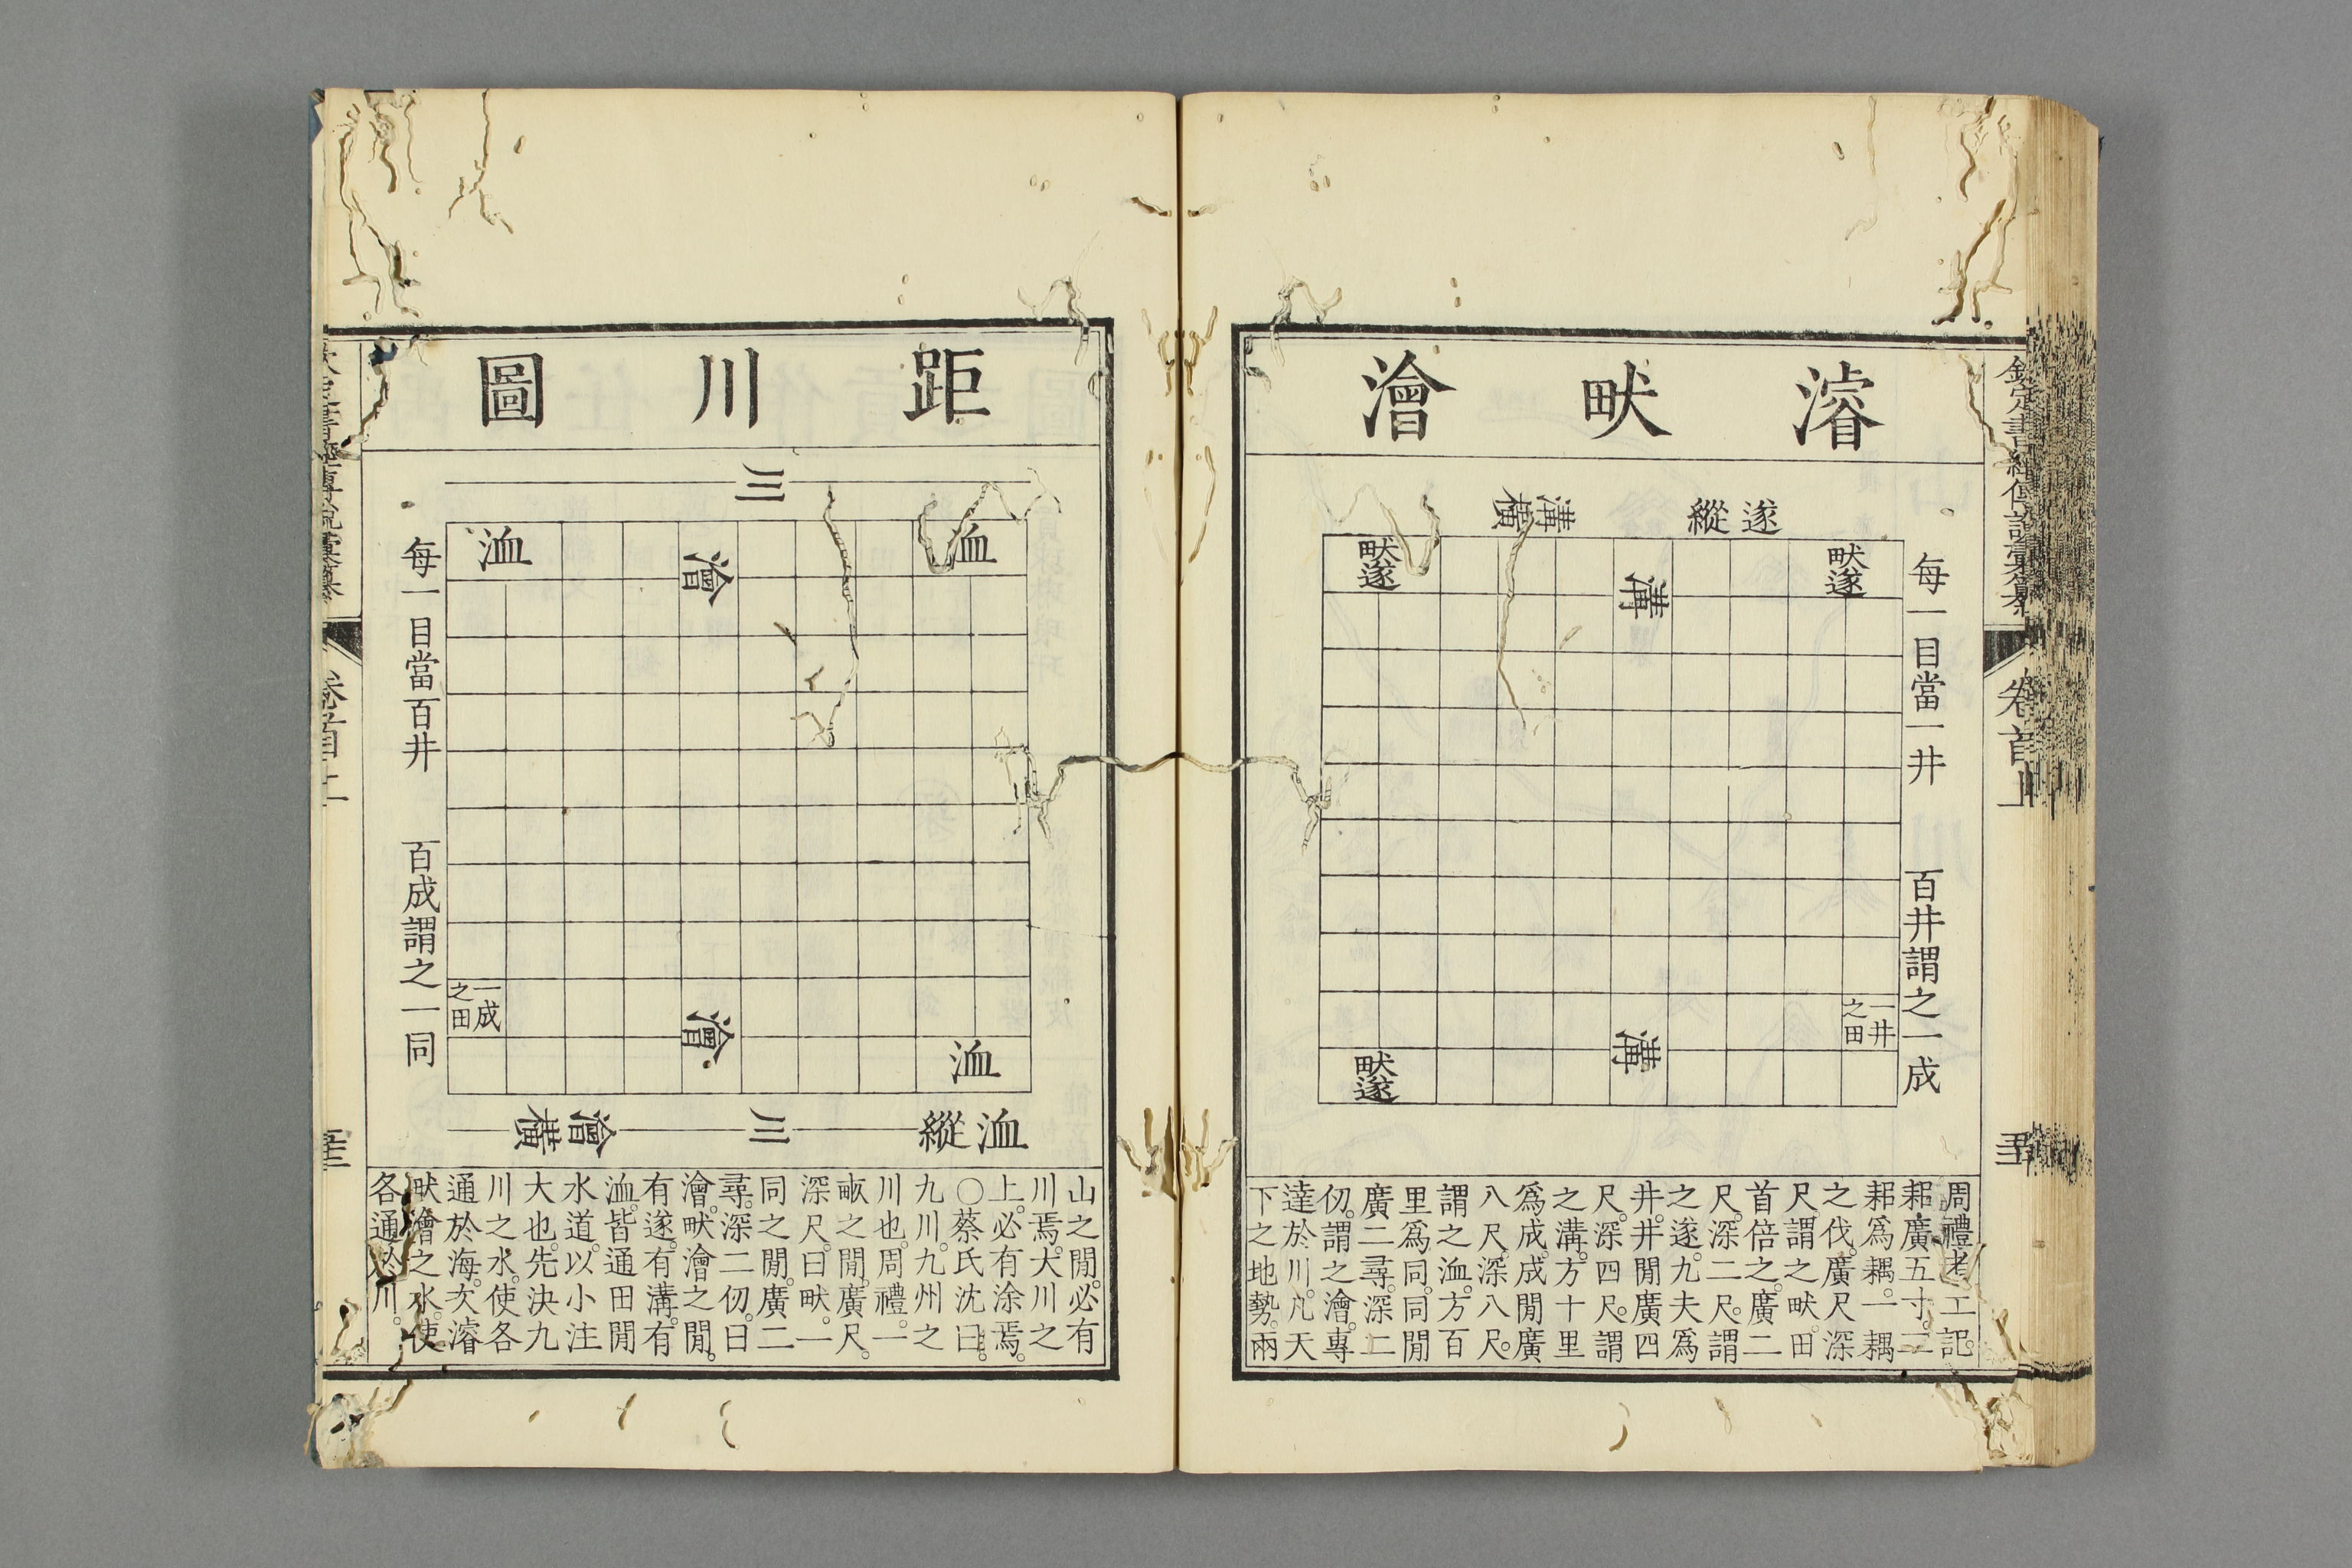 濬畎澮
遂縱
溝橫
畎遂
畎遂
溝
溝
畎遂
一井之田
每一目當一井
百井謂之一成
卷首上
周禮考工記
耜廣五寸。二
耜爲耦。一耦
之伐。廣尺深
尺謂之畎。田
首倍之。廣二
尺。深二尺。謂
之遂。九夫爲
井。井閒廣四
尺。深四尺。謂
之溝。方十里
爲成。成閒廣
八尺。深八尺。
謂之洫。方百
里爲同。同閒
廣二尋。深二
仞。謂之澮。專
達於川。凡天
下之地勢。兩
距川圖
川
洫
澮
洫
澮
洫
一成之田
洫縱
川
澮橫
每一目當百井
百成謂之一同
山之閒。必有
川焉。大川之
上。必有涂焉。
○蔡氏沈曰。
九川。九州之
川也。周禮。一
畝之閒。廣尺。
深尺。曰畎。一
同之閒。廣二
尋。深二仞。曰
澮。畎澮之閒。
有遂。有溝。有
洫。皆通田閒
水道。以小注
大也。先決九
川之水。使各
通於海。次濬
畎澮之水。使
各通於川。